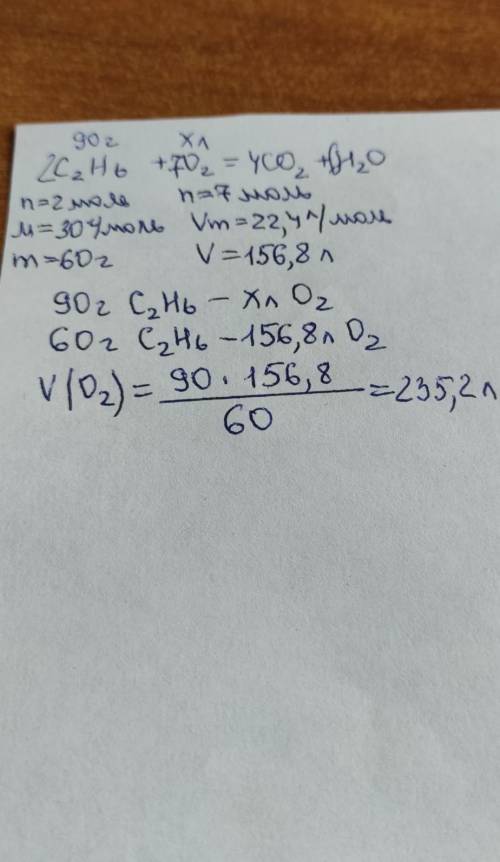 90г хл
2C₂H₆ + 7O₂ = 4CO₂ + 6H₂O
n=2моль n=7 моль
М=30г/моль Vm=22,4л/моль
m=60г V=156,8 л
90г C₂H₆ – хл O₂
60г C₂H₆ – 156,8л O₂
V(O₂) = 90·156,8 / 60 = 235,2л